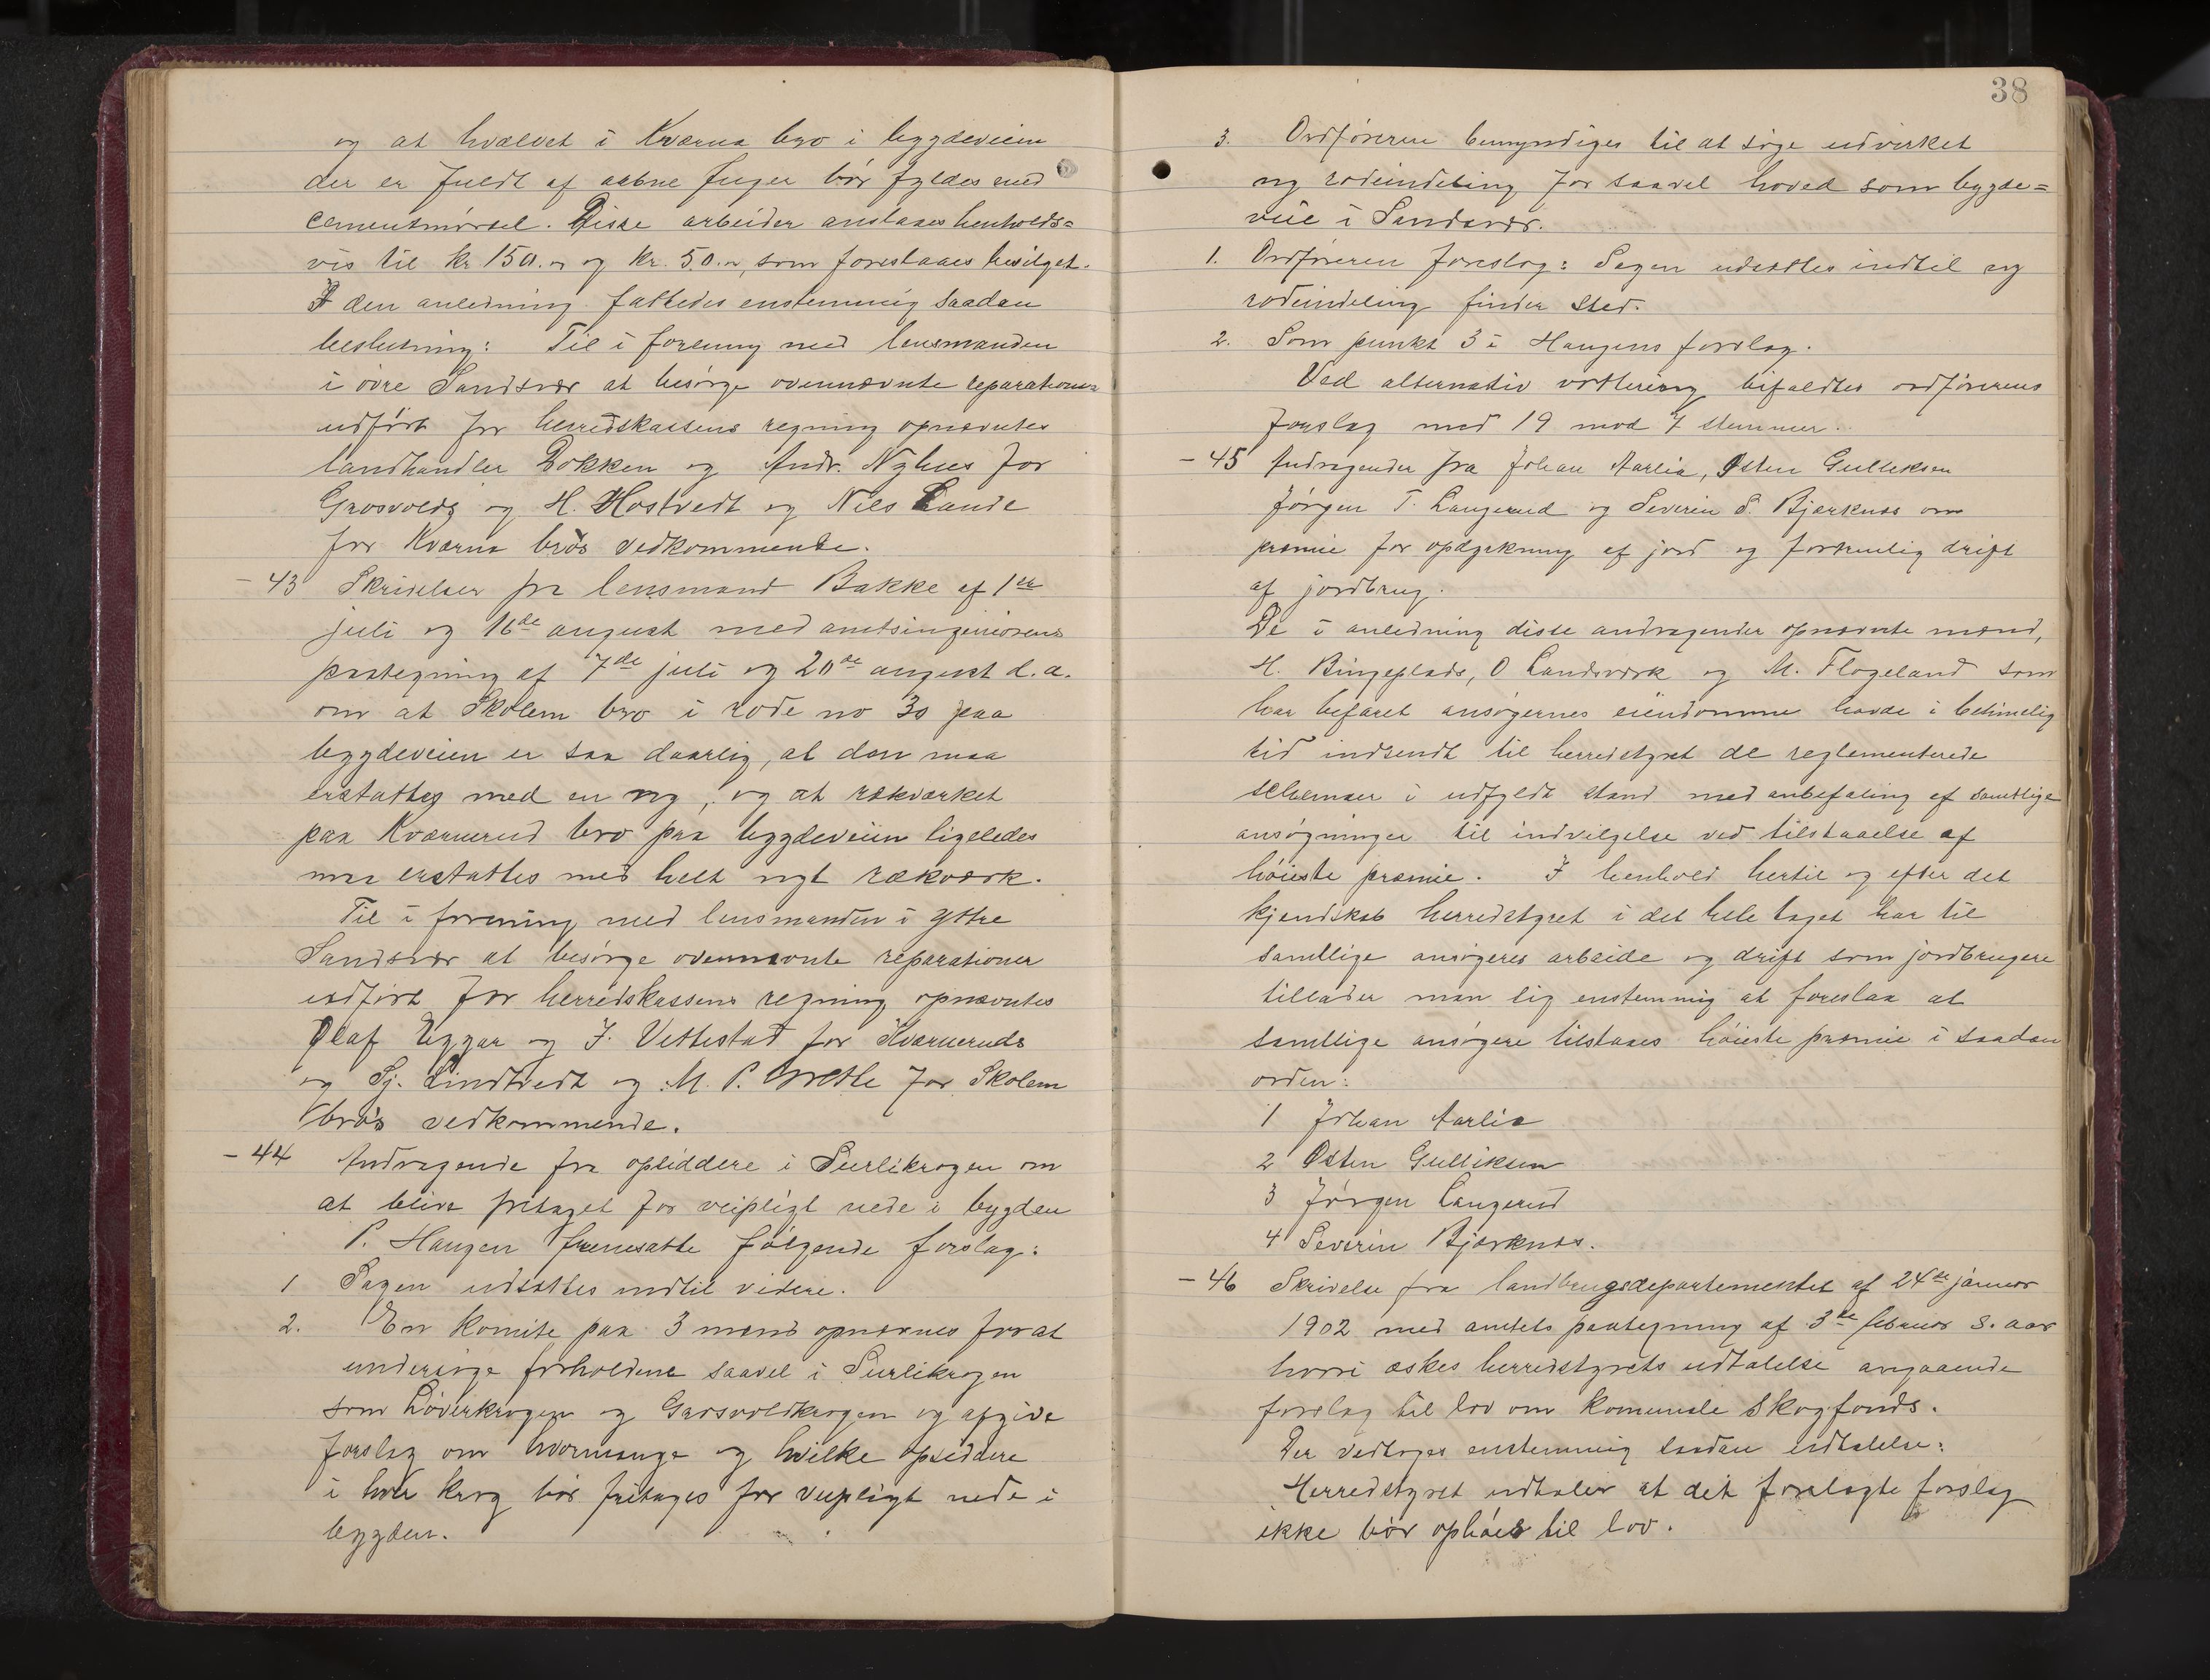 og at hvælvet i Kværna bro i bygdeveien
der er fuldt af aabne fuger bør fyldes med
cementmørtel. Disse arbeider anslaaes henholds=
vis til kr 150.00 og kr. 50.00, som foreslaaes bevilget.
I den anledning fattedes enstemmig saadan
beslutning: Til i forening med lensmanden
i øvre Sandsvær at besørge ovennævnte reparationer
udført for herredskassens regning opnævntes
landhandler Dokken og Andr. Nyhus for
Grosvolds og H. Hostvedt og Nils Lande
for Kværna bros vedkommende.
- 43 Skrivelser fra lensmand Bakke af 1ste
juli og 16de august med amtsingeniørens
paategning af 7de juli og 20de august d. a.
om at Skolem bro i rode no 30 paa
bygdeveien er saa daarlig, at den maa
erstattes med en ny, og at rækværket
paa Kværnerud bro paa bygdeveien ligeledes
maa erstattes med helt nyt rækværk.
Til i forening med lensmanden i Yttre
Sandsvær at besørge ovennævnte reparationer
udført for herredskassens regning opnævntes
Olaf Eggar og J. Vettestad for Kværneruds
og Sj. Lindtvedt og M. P. for Skolem
bros vedkommende.
- 44 Andragende fra opsiddere i Surlikrogen om
at blive fritaget for veipligt nede i bygden
P. Haugen fremsatte følgende forslag:
1 Sagen udsættes indtil videre.
2. En komite paa 3 mænd opnævnes for at
undersøge forholdene saavel i Surlikrogen
som Løverkrogen og Grosvoldkrogen og afgive
forslag om hvormange og hvilke opsiddere
i hver krog bør fritages for veipligt nede i
bygden.
38
3. Ordføreren bemyndiges til at søge udvirket
ny rodeindeling for saavel hoved som bygde=
veie i Sandsvær.
1. Ordføreren foreslog: Sagen udsættes indtil ny
rodeindeling finder sted.
2. Som punkt 3 i Haugens forslag.
Ved alternativ vottering bifaldtes ordførerens
forslag med 19 mod 7 stemmer.
- 45 Andragender fra Johan Aarlia, Østen Gulliksen
Jørgen T. Langerud og Severin S. Bjørknes om
præmie for opdyrkning af jord og forstandig drift
af jordbrug.
De i anledning disse andragender opnævnte mænd,
H. Bingeplads, O Landsværk og M. Flogeland som
har befaret ansøgernes eiendomme havde i betimelig
tid indsendt til herredstyret de reglementerede
schemaer i udfyldt stand med anbefaling af samtlige
ansøgninger til indvilgelse ved tilstaaelse af
høieste præmie. I henhold hertil og efter det
kjendskab herredstyret i det hele taget har til
samtlige ansøgeres arbeide og drift som jordbrugere
tillader man sig enstemmig at foreslaa at
samtlige ansøgere tilstaaes høieste præmie i saadan
orden:
1 Johan Aarlia
2 Østen Gulliksen
3 Jørgen Langerud
4 Severin Bjørknes.
- 46 Skrivelse fra landbrugsdepartementet af 24de januar
1902 med amtets paategning af 3die februar s. aar
hvori æskes herredstyrets udtalelse angaaende
forslag til lov om komunale skogfonds.
Der vedtoges enstemmig saadan udtalelse:
Herredstyret udtaler at det forelagte forslag
ikke bør ophøies til lov.